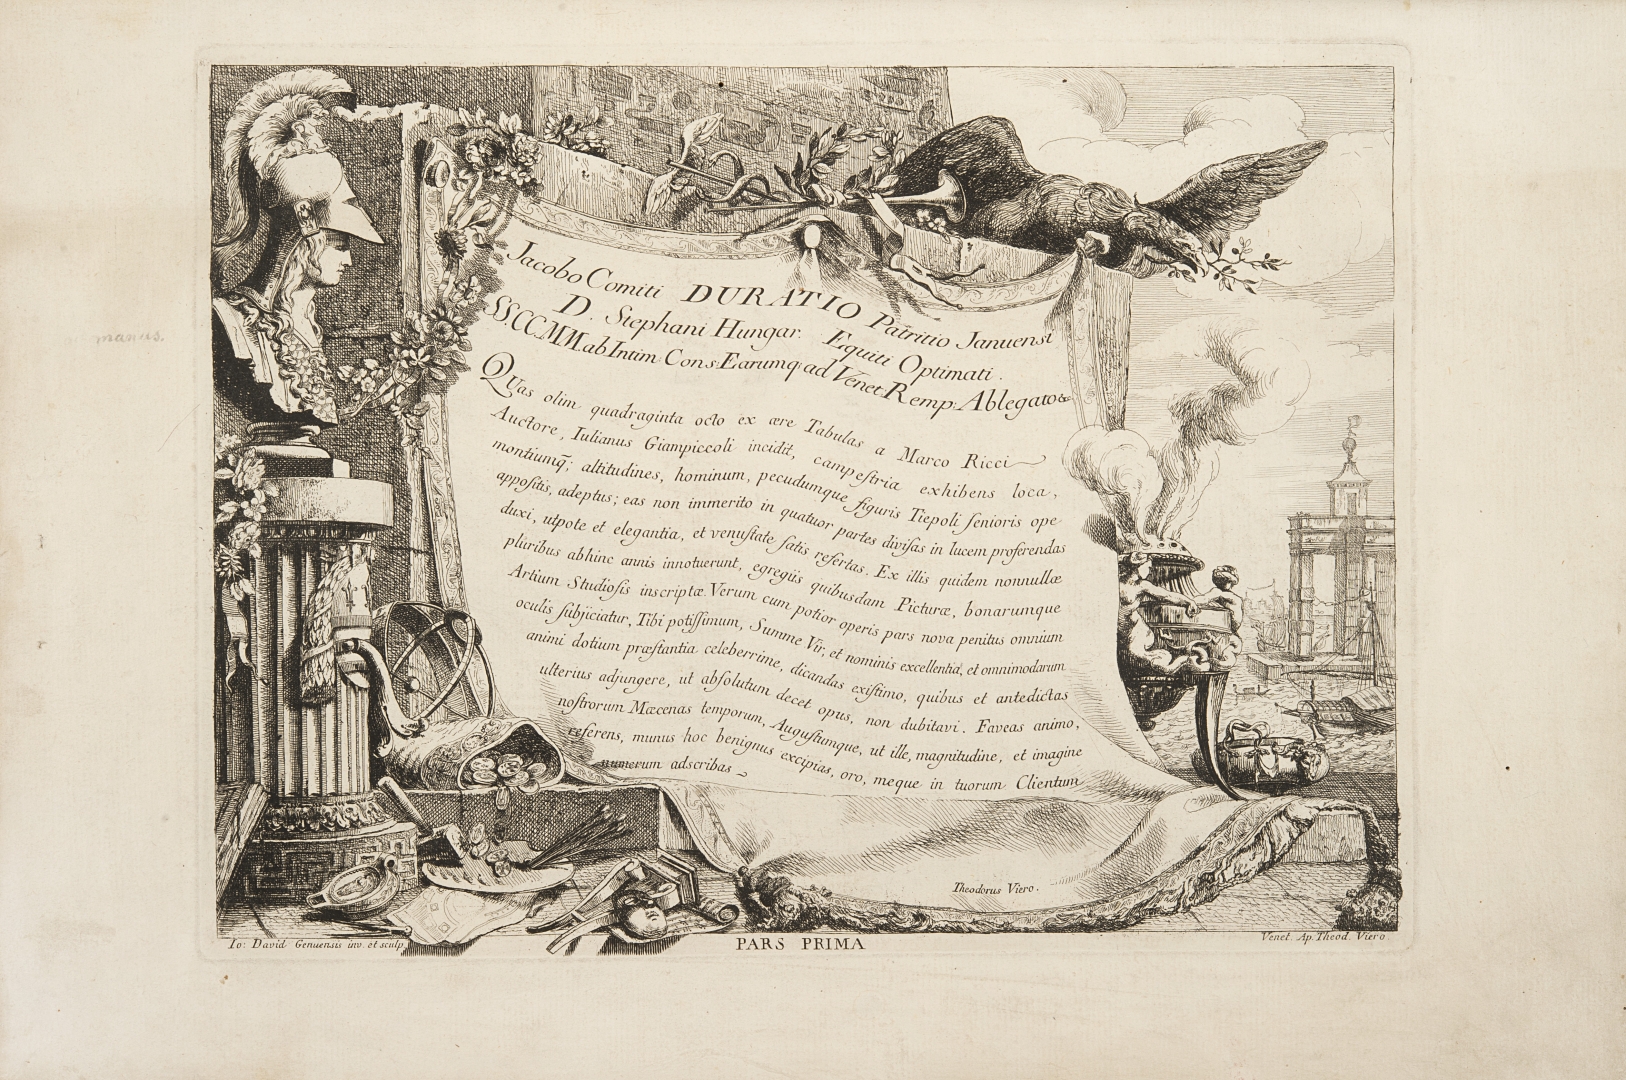 Jacobo Comiti DURATIO Patritio Januensi
D. Stephani Hungar. Equiti Optimati.
SS.CC.MM. ab Intim Cons. Earumq; ad Venet. Remp. Ablegato &
QUas olim quadraginta octo ex ære Tabulas a Marco Ricci
Auctore, Iulianus Giampiccoli incidit, campeſtria exhibens loca,
montiumq̃; altitudines, hominum, pecudumque figuris Tiepoli ſenioris ope
appoſitis, adeptus; eas non immerito in quatuor partes diviſas in lucem proferendas
duxi, utpote et elegantia, et venuſtate ſatis refertas. Ex illis quidem nonnullæ
pluribus abhinc annis innotuerunt, egregiis quibusdam Picturæ, bonarumque
Artium Studioſis inscriptæ. Verum cum potior operis pars nova penitus omnium
oculis ſubjiciatur, Tibi potiſſimum, Summe Vir, et nominis excellentia, et omnimodarum
animi dotium præſtantia celeberrime, dicandas exiſtimo, quibus et antedictas
ulterius adjungere, ut abſolutum decet opus, non dubitavi. Faveas animo,
noſtrorum Mæcenas temporum, Auguſtumque, ut ille, magnitudine, et imagine
referens, munus hoc benignus excipias, oro, meque in tuorum Clientum
numerum adscribas
Theodorus Viero.
Io: David Genuensis inv. et sculp.
PARS PRIMA
Venet. Ap. Theod. Viero
manus.